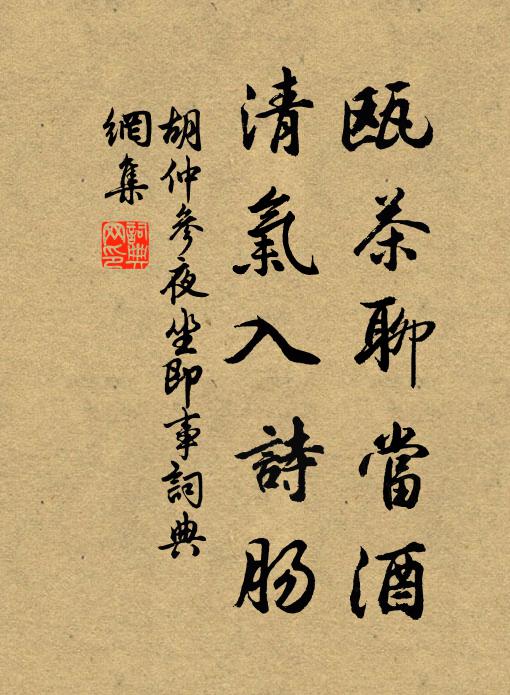 甌茶聊當酒
清氣入詩肠
胡仲參夜坐即事詞典
網集
詞典
网印